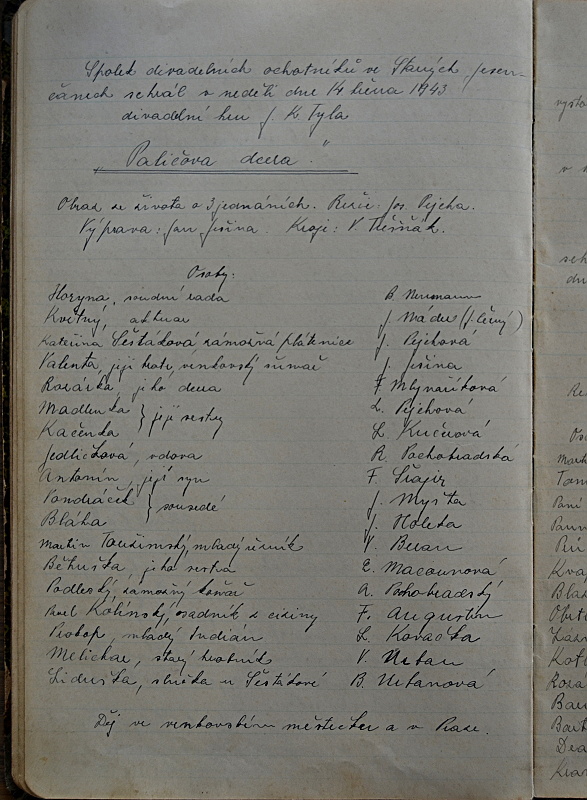 Spolek divadelních ochotníků ve Starých Jesen-
čanech sehrál v neděli dne 14 února 1943
divadelní hru J. K. Tyla
"Paličova dcera."
Obraz ze života o 3 jednáních. Režie: Jos. Pejcha.
Výprava: Jan Ješina. Kroje: V. Třešňák.
Osoby:
Hozyna, soudní rada B. Neumann
Květný, aktuar J. Mádr (J. Černý)
Kateřina Šestáková zámožná plátenice J. Pejchová
Valenta, její bratr, venkovský šumař J. Ješina
Rozárka jeho dcera F. Mlynaříková
Madlenka } její sestry L. Pejchová
Kačenka L. Kučerová
Jedličková, vdova R. Pochobradská
Antonín, její syn F. Šrajer
Pondráček } sousedé J. Myška
Bláha J. Holeka
Martin Toušimský, mladý úředník V. Beran
Běluška, jeho sestra E. Macounová
Podleský, zámožný kovář A. Pochobradský
Pavel Kolínský, osadník z ciziny F. Augustin
Prokop, mladý Indián L. Kovačka
Melichar, starý hrobník V. Urban
Liduška, služka u Šestákové B. Urbanová
Děj ve venkovském městečku a v Praze.